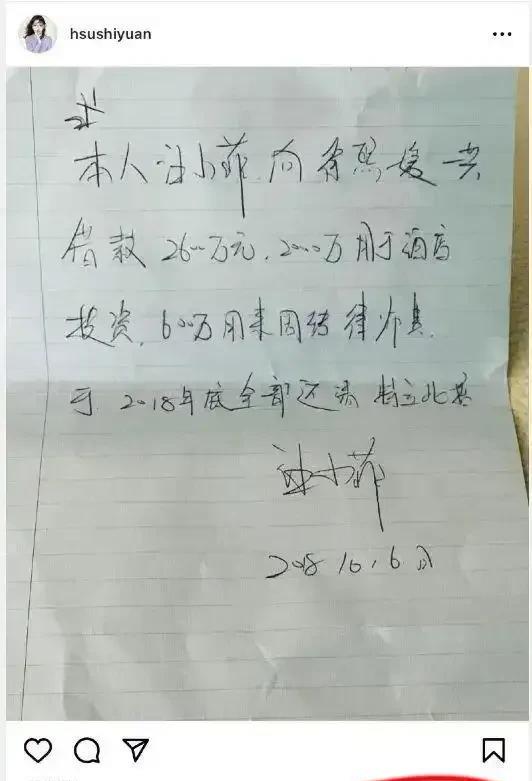 hsushiyuan
本人汪小菲向徐熙媛共
借款2600万元,2000万用于酒店
投资,600万用来结律师费.
于2018年底全部还清 特立此据
汪小菲
2018 10.6日